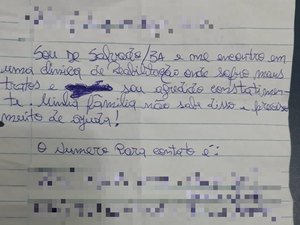 Sou de Salvador/BA e me encontro em
uma clinica de reabilitação onde sofro maus
tratos e sou agredido constatimen-
te. Minha família não sabe disso e preciso
muito de ajuda!
O Numero para contato é: